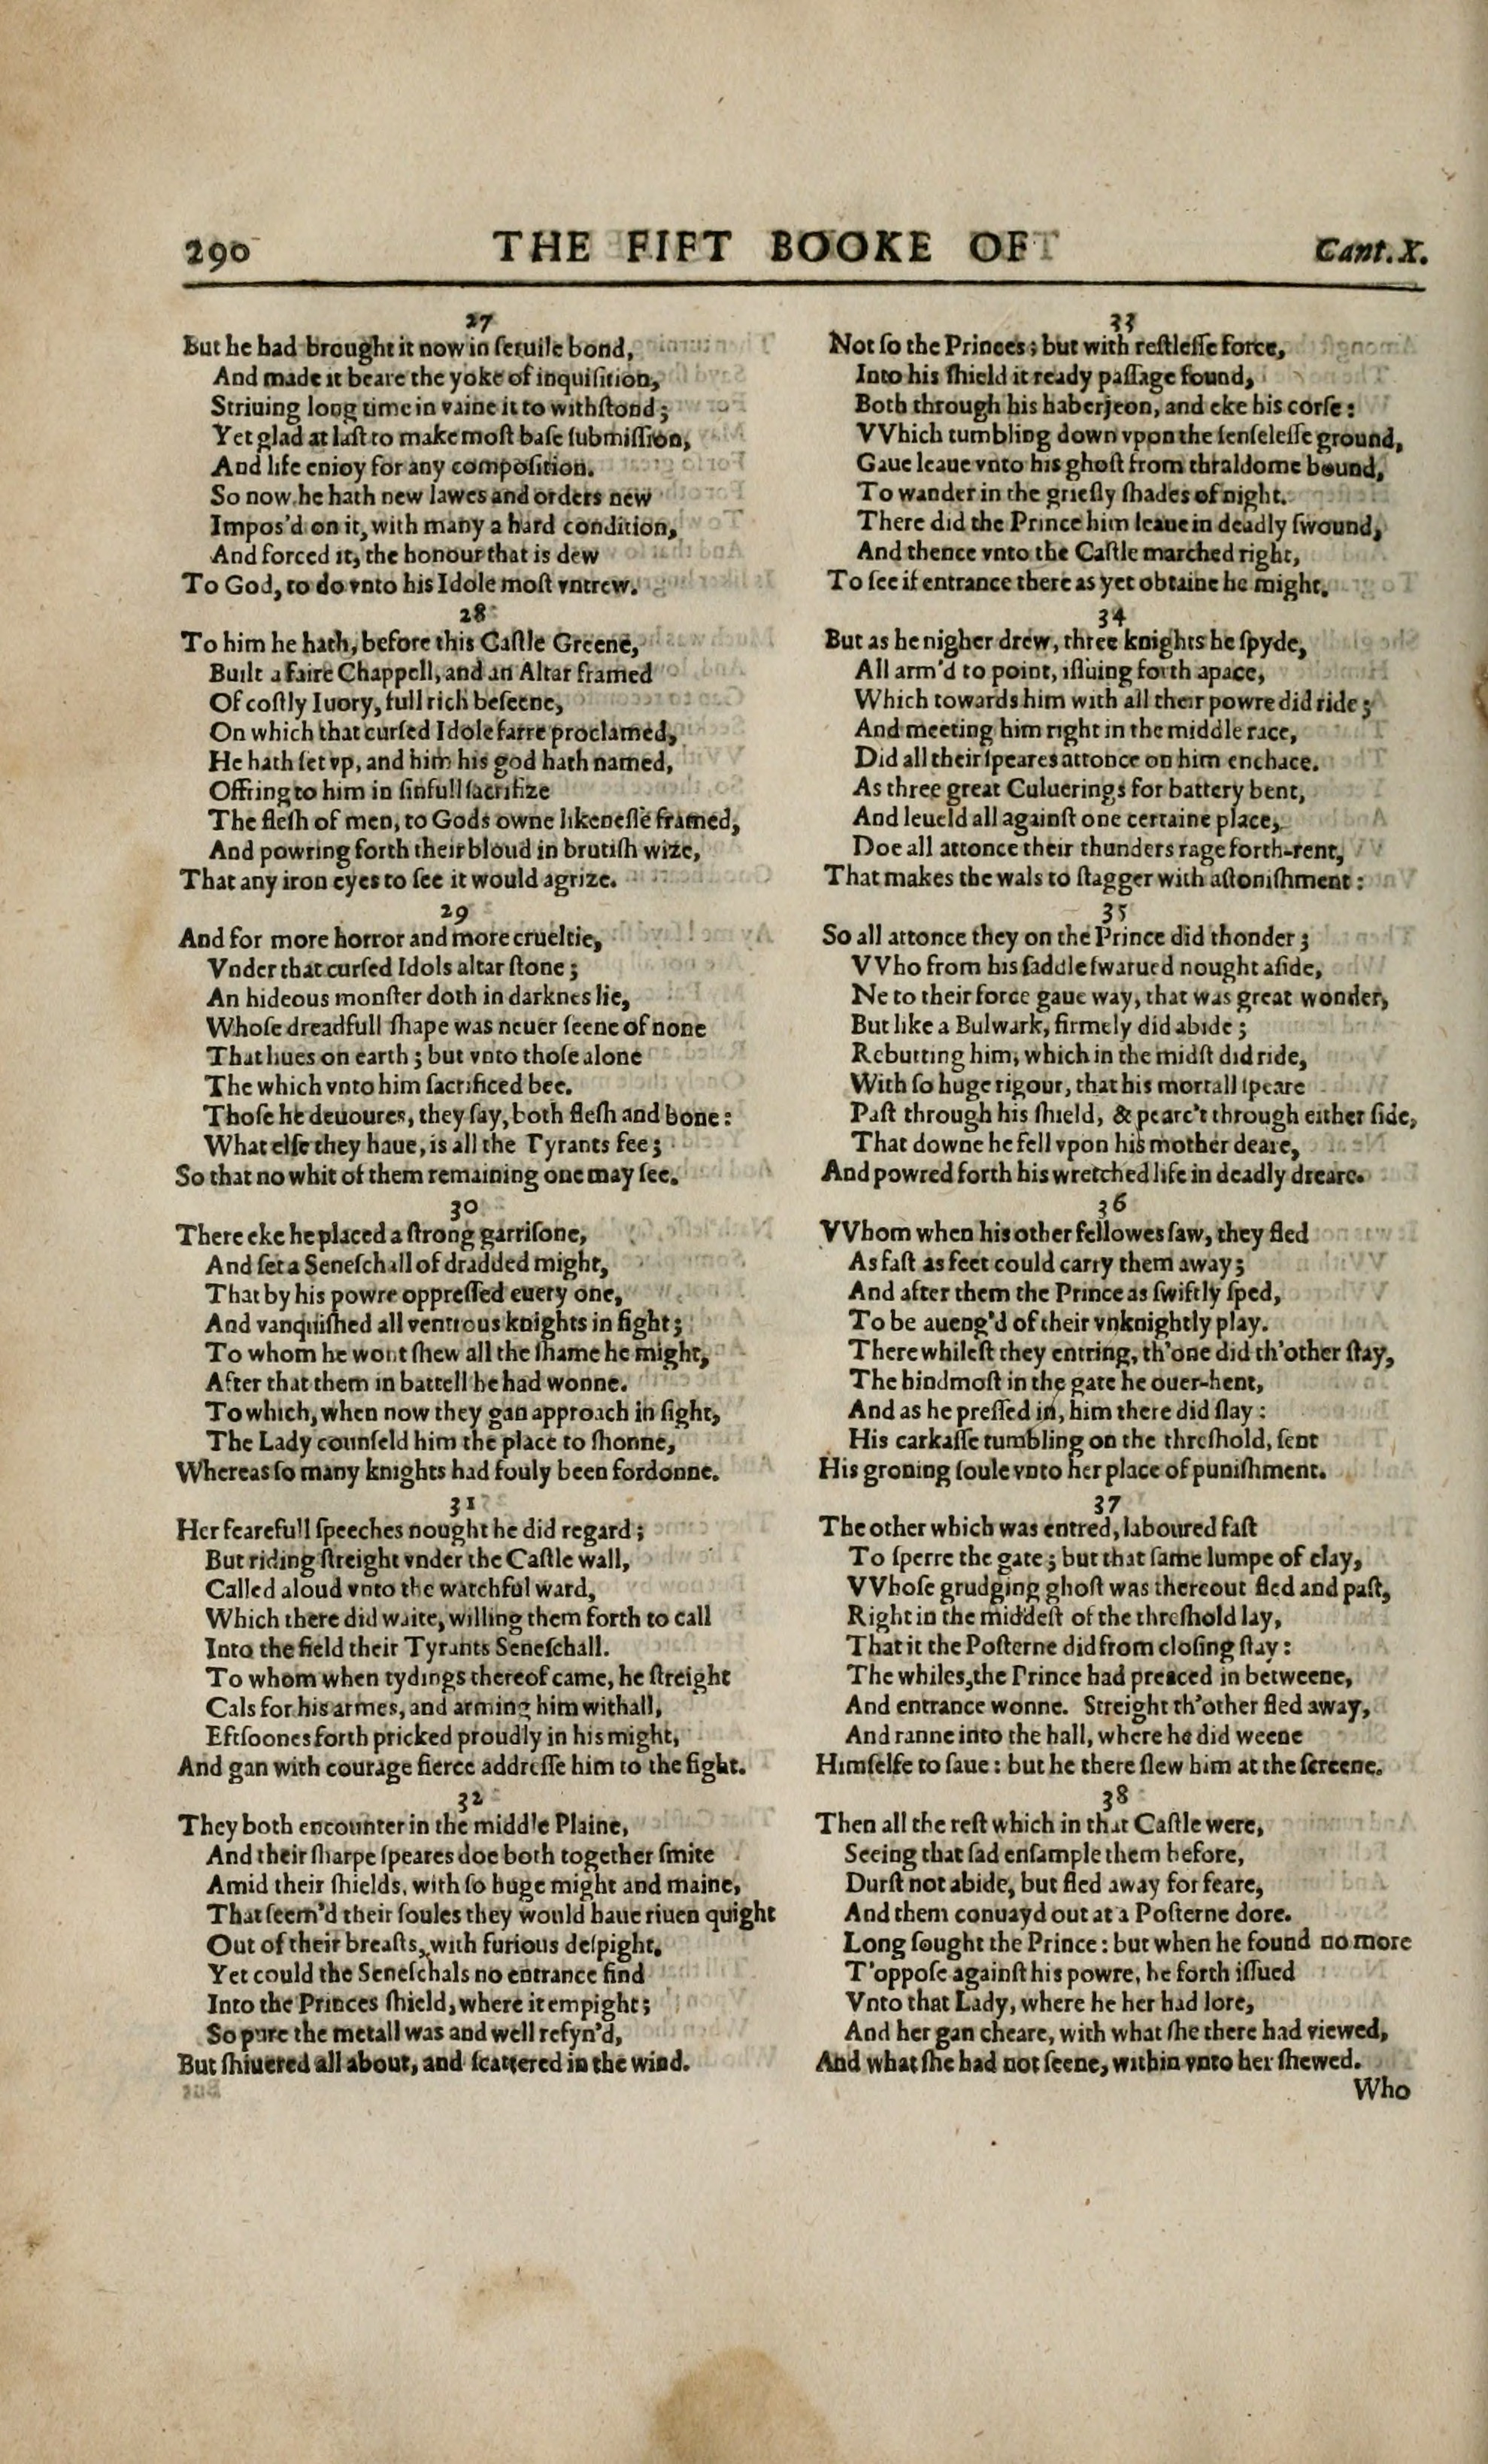 290
THE FIFT BOOKE OF
Cant. X.
27
But he had brought it now in ſeruile bond,
And made it beare the yoke of inquiſition,
Striuing long time in vaine it to withſtond;
Yet glad at laſt to make moſt baſe ſubmiſſion,
And life enioy for any compoſition.
So now he hath new lawes and orders new
Impos'd on it, with many a hard condition,
And forced it, the honour that is dew
To God, to do vnto his Idole moſt vntrew.
28
To him he hath, before this Caſtle Greene,
Built a faire Chappell, and an Altar framed
Of coſtly Iuory, full rich beſeene,
On which that curſed Idole farre proclamed,
He hath ſet vp, and him his god hath named,
Offring to him in ſinfull ſacrifize
The fleſh of men, to Gods owne likeneſſe framed,
And powring forth their bloud in brutiſh wize,
That any iron eyes to ſee it would agrize.
29
And for more horror and more crueltie,
Vnder that curſed Idols altar ſtone;
An hideous monſter doth in darknes lie,
Whoſe dreadfull ſhape was neuer ſeene of none
That liues on earth; but vnto thoſe alone
The which vnto him ſacrificed bee.
Thoſe he deuoures, they ſay, both fleſh and bone:
What elſe they haue, is all the Tyrants fee;
So that no whit of them remaining one may ſee.
30
There eke he placed a ſtrong garriſone,
And ſet a Seneſchall of dradded might,
That by his powre oppreſſed euery one,
And vanquiſhed all ventrous knights in fight;
To whom he wont ſhew all the ſhame he might,
After that them in battell he had wonne.
To which, when now they gan approach in ſight,
The Lady counſeld him the place to ſhonne,
Whereas ſo many knights had fouly been fordonne.
31
Her fearefull ſpeeches nought he did regard;
But riding ſtreight vnder the Caſtle wall,
Called aloud vnto the watchful ward,
Which there did waite, willing them forth to call
Into the field their Tyrants Seneſchall.
To whom when tydings thereof came, he ſtreight
Cals for his armes, and arming him withall,
Eftſoones forth pricked proudly in his might,
And gan with courage fierce addreſſe him to the fight.
32
They both encounter in the middle Plaine,
And their ſharpe ſpeares doe both together ſmite
Amid their ſhields, with ſo huge might and maine,
That ſeem'd their ſoules they would haue riuen quight
Out of their breaſts, with furious deſpight.
Yet could the Seneſchals no entrance find
Into the Princes ſhield, where it empight;
So pure the metall was and well refyn'd,
But ſhiuered all about, and ſcattered in the wind.
33
Not ſo the Princes; but with reſtleſſe force,
Into his ſhield it ready paſſage found,
Both through his haberjeon, and eke his corſe:
VVhich tumbling down vpon the ſenſeleſſe ground,
Gaue leaue vnto his ghoſt from thraldome bound,
To wander in the grieſly ſhades of night.
There did the Prince him leaue in deadly ſwound,
And thence vnto the Caſtle marched right,
To ſee if entrance there as yet obtaine he might.
34
But as he nigher drew, three knights he ſpyde,
All arm'd to point, iſſuing forth apace,
Which towards him with all their powre did ride;
And meeting him right in the middle race,
Did all their ſpeares attonce on him enchace.
As three great Culuerings for battery bent,
And leueld all againſt one certaine place,
Doe all attonce their thunders rage forth-rent,
That makes the wals to ſtagger with aſtoniſhment:
35
So all attonce they on the Prince did thonder;
VVho from his ſaddle ſwarued nought aſide,
Ne to their force gaue way, that was great wonder,
But like a Bulwark, firmely did abide;
Rebutting him, which in the midſt did ride,
With ſo huge rigour, that his mortall ſpeare
Paſt through his ſhield, & pearc't through either ſide,
That downe he fell vpon his mother deare,
And powred forth his wretched life in deadly dreare.
36
VVhom when his other fellowes ſaw, they fled
As faſt as feet could carry them away;
And after them the Prince as ſwiftly ſped,
To be aueng'd of their vnknightly play.
There whileſt they entring, th'one did th'other ſtay,
The hindmoſt in the gate he ouer-hent,
And as he preſſed in, him there did ſlay:
His carkaſſe tumbling on the threſhold, ſent
His groning ſoule vnto her place of puniſhment.
37
The other which was entred, laboured faſt
To ſperre the gate; but that ſame lumpe of clay,
VVhoſe grudging ghoſt was thereout fled and paſt,
Right in the middeſt of the threſhold lay,
That it the Poſterne did from cloſing ſtay:
The whiles, the Prince had preaced in betweene,
And entrance wonne. Streight th'other fled away,
And ranne into the hall, where he did weene
Himſelfe to ſaue: but he there ſlew him at the ſcreene.
38
Then all the reſt which in that Caſtle were,
Seeing that ſad enſample them before,
Durſt not abide, but fled away for feare,
And them conuayd out at a Poſterne dore.
Long ſought the Prince: but when he found no more
T'oppoſe againſt his powre, he forth iſſued
Vnto that Lady, where he her had lore,
And her gan cheare, with what ſhe there had viewed,
And what ſhe had not ſeene, within vnto her ſhewed.
Who